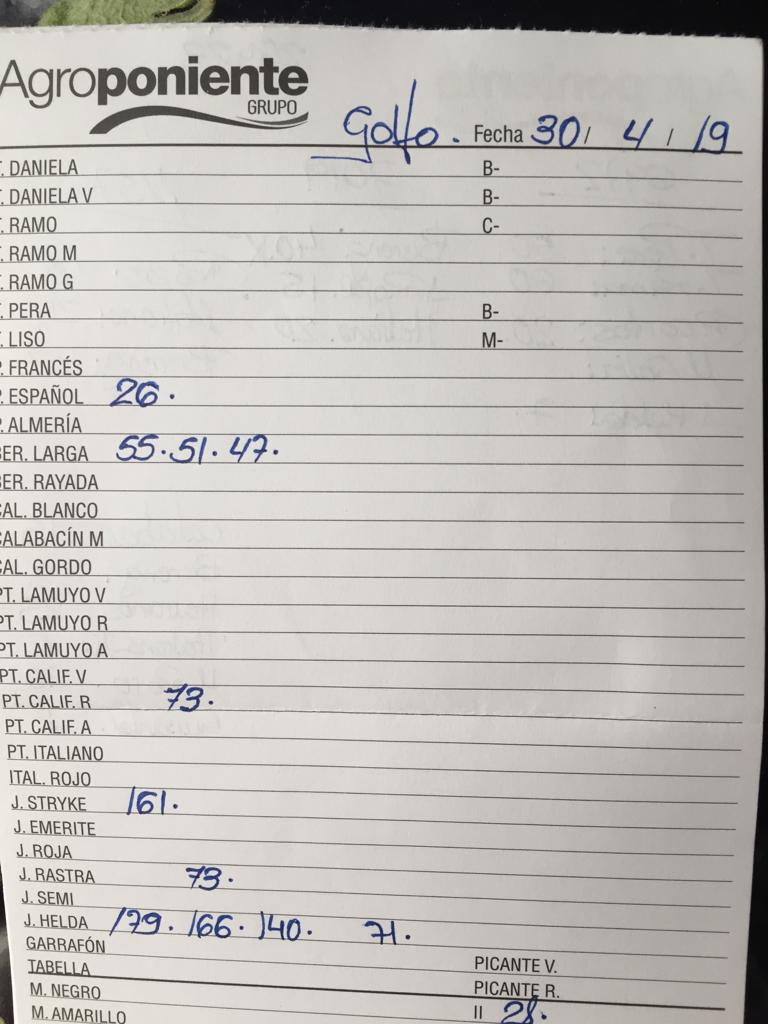 Agroponiente
GRUPO
Golfo. Fecha 30/ 4 / 19
T. DANIELA B-
T. DANIELA V B-
T. RAMO C-
T. RAMO M
T. RAMO G
T. PERA B-
T. LISO M-
P. FRANCÉS
P. ESPAÑOL 26.
P. ALMERÍA
BER. LARGA 55. 51. 47.
BER. RAYADA
CAL. BLANCO
CALABACÍN M
CAL. GORDO
PT. LAMUYO V
PT. LAMUYO R
PT. LAMUYO A
PT. CALIF. V
PT. CALIF. R 73.
PT. CALIF. A
PT. ITALIANO
ITAL. ROJO
J. STRYKE 161.
J. EMERITE
J. ROJA
J. RASTRA 73.
J. SEMI
J. HELDA 179. 166. 140. 71.
GARRAFÓN
TABELLA PICANTE V.
M. NEGRO PICANTE R.
M. AMARILLO II 28.